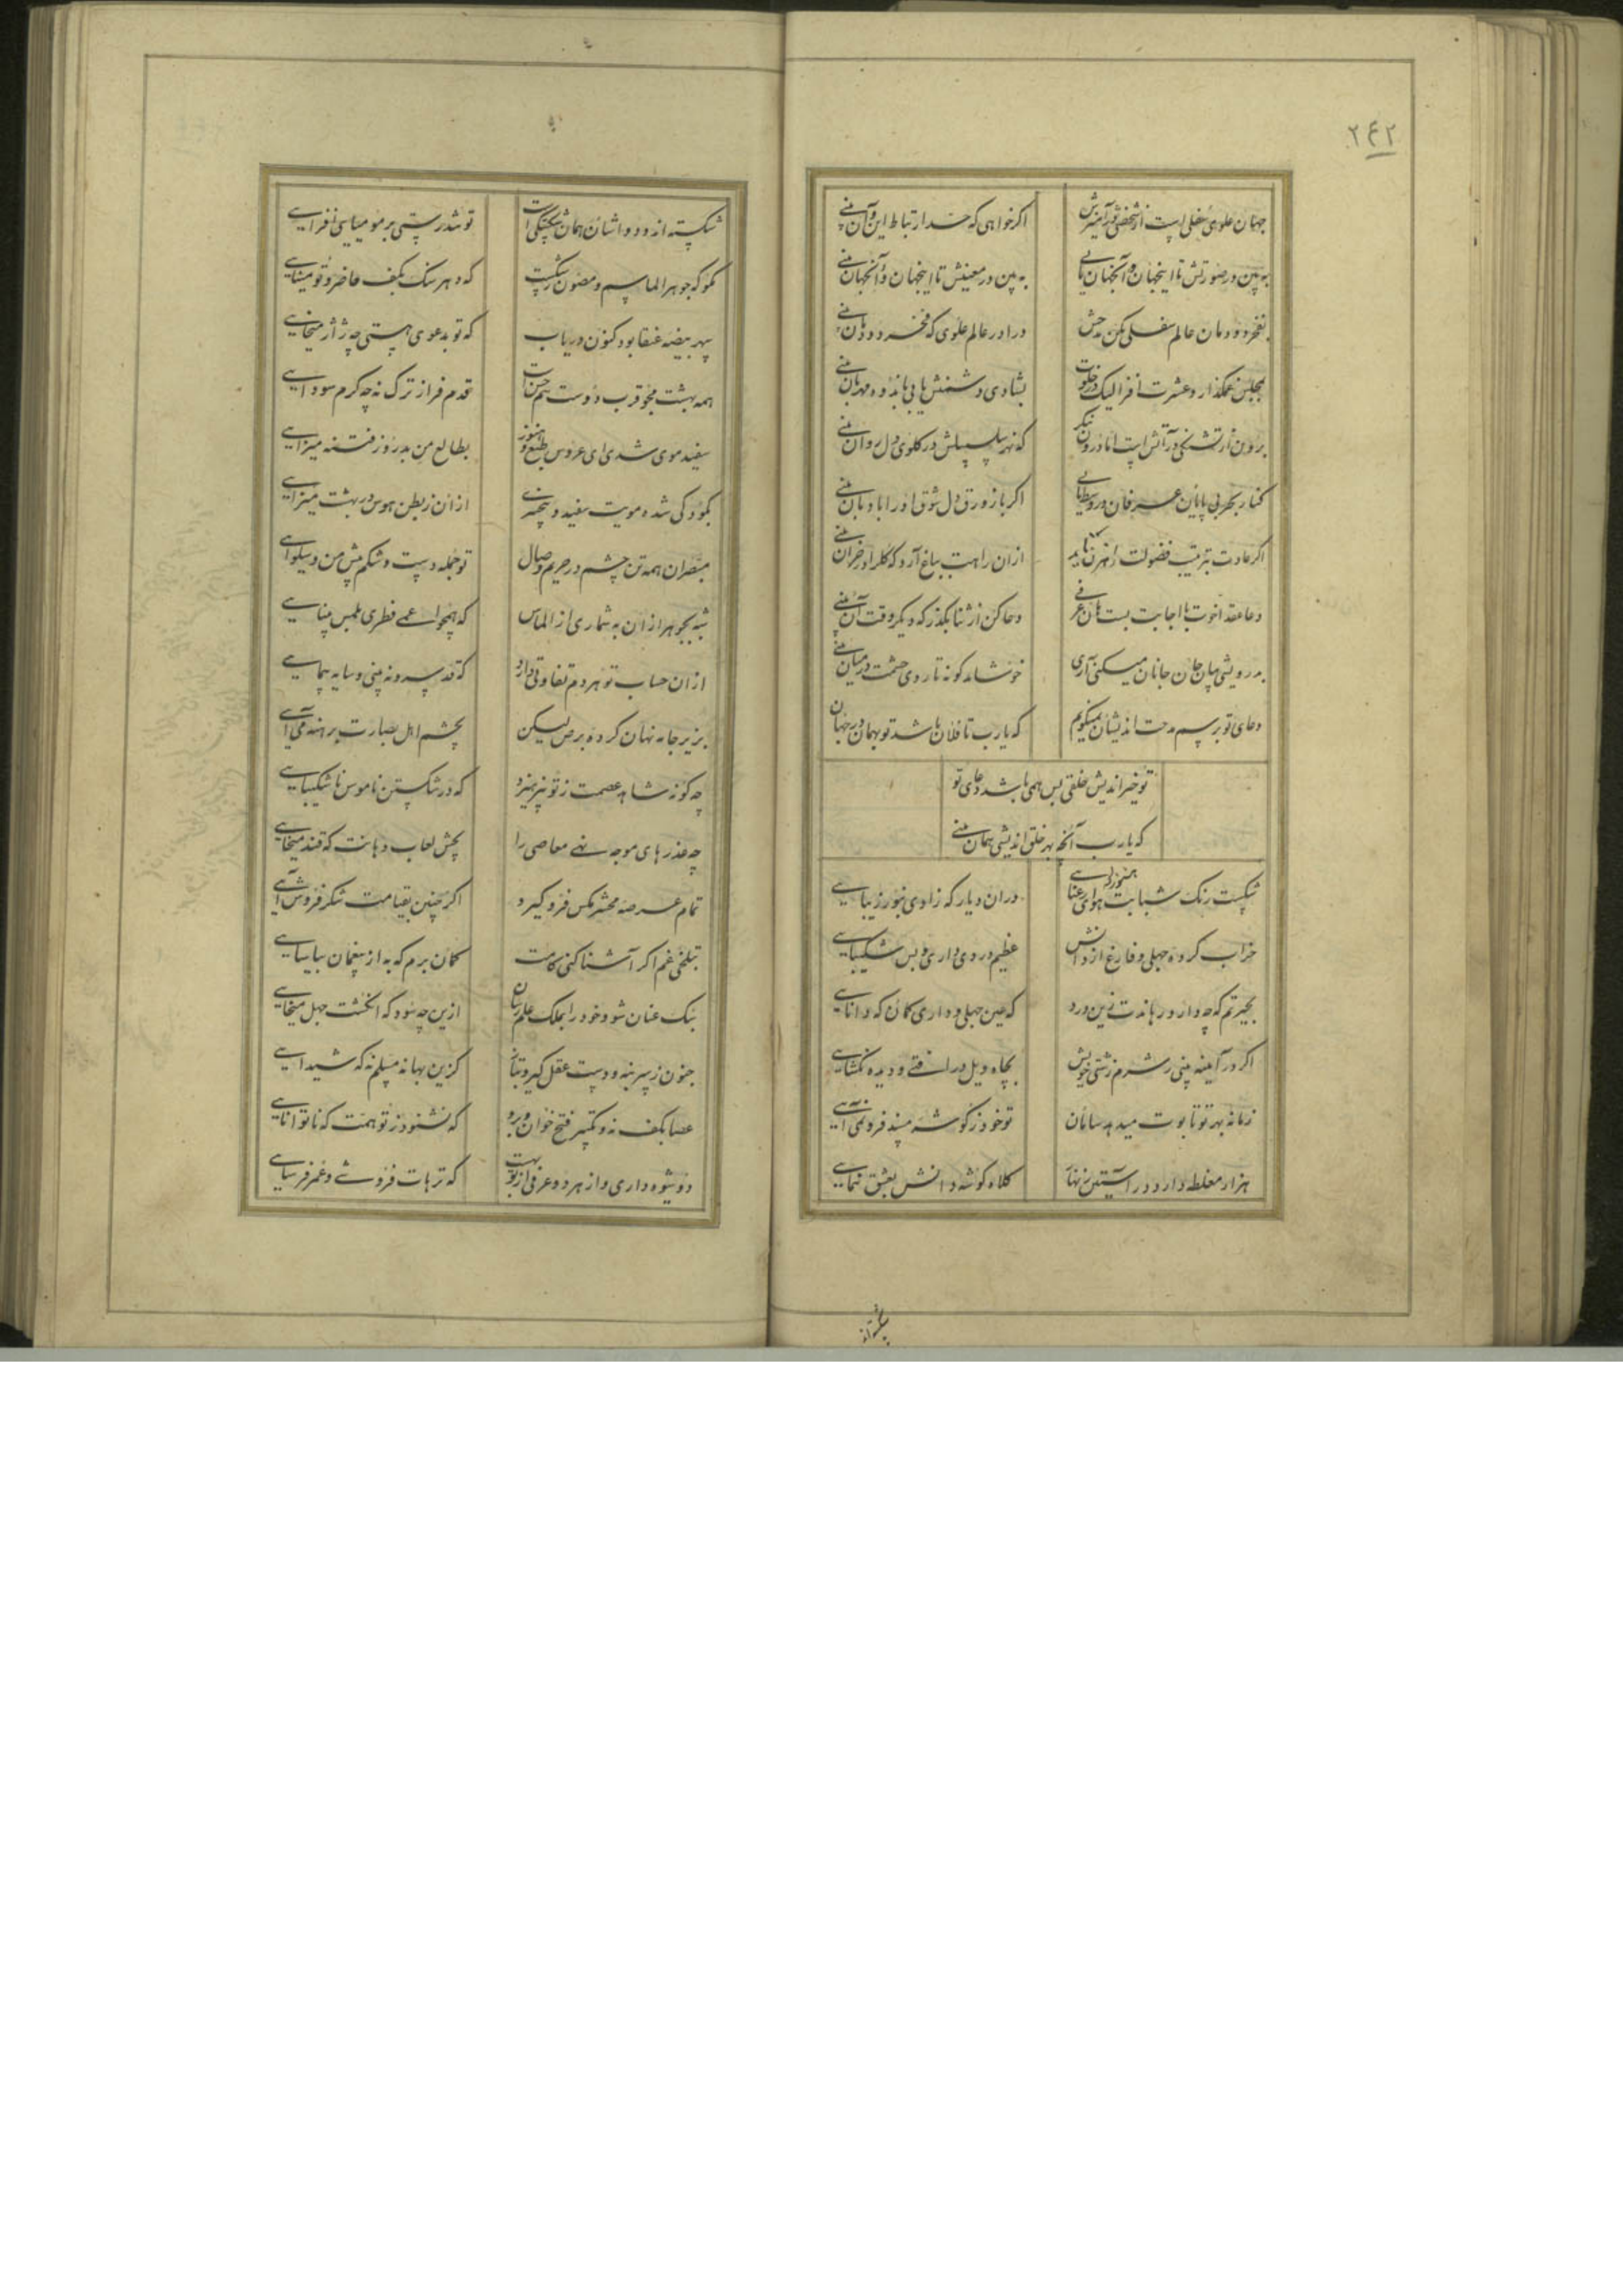 ۲۴۲
جهان علوی و سفلی است از شخص تو آمیزش
اگر خواهی که حد ارتباط این و آن بینی
ببین در صورتش تا اینجهان و آنجهان یابی
ببین در معنیش تا اینجهان و آنجهان بینی
بفخر دودمان عالم سفلی مکن مدحش
درا در عالم علوی که فخر دودمان بینی
بمجلس غمگذار و عشرت افزا لیک در خلوت
بشادی دشمنش یابی باندوه مهربان بینی
برون از تشنگی در آتش است اما درون بنگر
که نهر سلسبیلش در گلوی دل روان بینی
کنار بحر بی پایان عرفان در وسط یابی
اگر با زورق دل شوق او را بادبان بینی
اگر عادت بترتیب فضولت رهزن نماید
ازان راهت بباغ آرد که گل را در خزان بینی
دعا عقد اخوت با اجابت بست هان عرفی
دعا کن از ثنا بگذر که دیگر وقت آن بینی
بدرویشی میان جان جانان میکنی آری
خوشامدگونه تا روی حشمت در میان بینی
دعای تو برسم مدحت اندیشان نمیگویم
که یارب تا فلان باشد تو بهمان در جهان
تو خیراندیش خلقی بس همی باشد دعای تو
که یارب آنچه بهر خلق اندیشی همان بینی
شکست رنگ شباب و هنوز رعنایی
دران دیار که زادی هنوز زیبایی
خراب کرده جهلی و فارغ از دانش
عظیم دردی داری و بس شکیبایی
بحیرتم که چه دارو رهاندت زین درد
که عین جهلی و داری گمان که دانایی
اگر در آینه بینی ز شرم زشتی خویش
بچاه ویل در افتی و دیده نگشایی
زمانه بهر تو تابوت میدهد سامان
تو خود ز گوشه مسند فرو نمی آیی
هزار مغلطه دارد در آستین نهان
کلاه گوشه دانش بعشق ننمایی
شکسته
شکسته اند و دواشان همان شکستگی است
تو تندرستی بر مومیایی افزایی
مگو که جوهر الماسم و مصون ز شکست
که دهر سنگ بکف حاضر و تو مینایی
سپهر بیضه عنقا بود کنون دریاب
که تو بدعوی هستی چه ژاژ میخایی
همه بهشت مجو قرب دوست هم حسن است
قدم فراز ترک نه چه گرم سودایی
سفید موی شدی ای عروس طبع و هنوز
بطالع من بدروز فتنه میزایی
بکودکی شده مویت سفید و
ازان ز بطن هوس در بهشت میزایی
مبصران همه تن چشم در حریم وصال
تو جمله دست و شکم پیش من و سلوایی
شبه بجوهر ازان به شماری از الماس
که همچو اعمی فطری بلمس بینایی
ازان حساب تو هر دم تفاوتی دارد
که قد سرو نه بینی و سایه پیمایی
بزیر جامه نهان کرده برص لیکن
بچشم اهل بصارت برهنه می آیی
چه گونه شاهد عصمت ز تو نپرهیزد
که در شکستن ناموس ناشکیبایی
چه عذرهای موجه نهی معاصی را
بچش لعاب دهانت که قند میخایی
تمام عرصه محشر مگس فرو گیرد
اگر چنین بقیامت شکر فروش آیی
بتلخی غم اگر آشنا کنی کامت
گمان برم که به از نیغمان بیاسایی
سبک عنان شو و خود را بملک علم رسان
ازین چه سود که انگشت جهل میخایی
جنون ز سر بنه و دست عقل گیر و بتاز
کزین بهانه مسلم نه که شیدایی
عصا بکف نه و تکبیر فتح خوان و برو
که نشنود ز تو همت که ناتوانایی
دو شیوه داری و از هر دو عرفی از تو بهت
که ترهات فروشی و عمر فرسایی